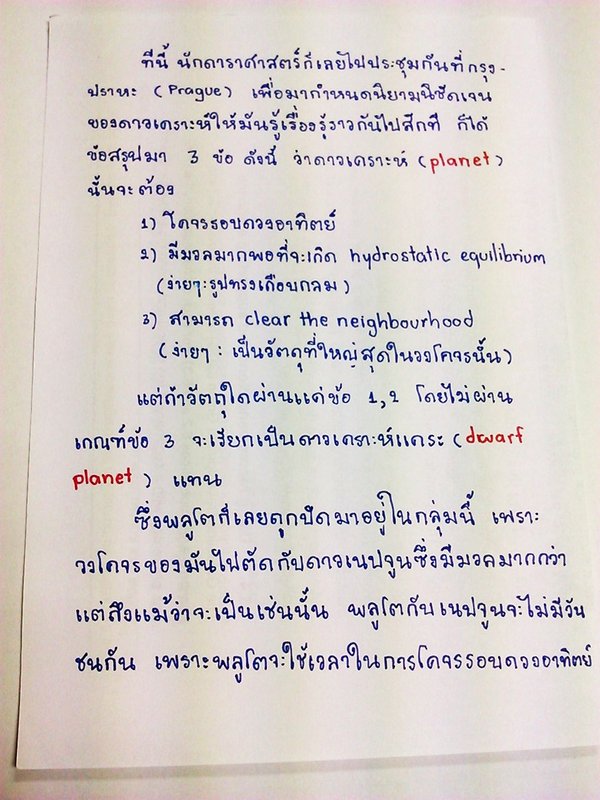 ทีนี้ นักดาราศาสตร์ก็เลยไปประชุมกันที่กรุง-
ปราหะ (Prague) เพื่อมากำหนดนิยามนิชัดเจน
ของดาวเคราะห์ให้มันรู้เรื่องรู้ราวกันไปสักที ก็ได้
ข้อสรุปมา 3 ข้อ ดังนี้ ว่าดาวเคราะห์ (planet)
นั้นจะต้อง
1) โคจรรอบดวงอาทิตย์
2) มีมวลมากพอที่จะเกิด hydrostatic equilibrium
(ง่ายๆ: รูปทรงเกือบกลม)
3) สามารถ clear the neighbourhood
(ง่ายๆ : เป็นวัตถุที่ใหญ่สุดในวงโคจรนั้น)
แต่ถ้าวัตถุใดผ่านแค่ข้อ 1,2 โดยไม่ผ่าน
เกณฑ์ข้อ 3 จะเรียกเป็นดาวเคราะห์แคระ (dwarf
planet) แทน
ซึ่งพลูโตก็เลยถูกปัดมาอยู่ในกลุ่มนี้ เพราะ
วงโคจรของมันไปตัดกับดาวเนปจูนซึ่งมีมวลมากกว่า
แต่ถึงแม้ว่าจะเป็นเช่นนั้น พลูโตกับเนปจูนจะไม่มีวัน
ชนกัน เพราะพลูโตจะใช้เวลาในการโคจรรอบดวงอาทิตย์